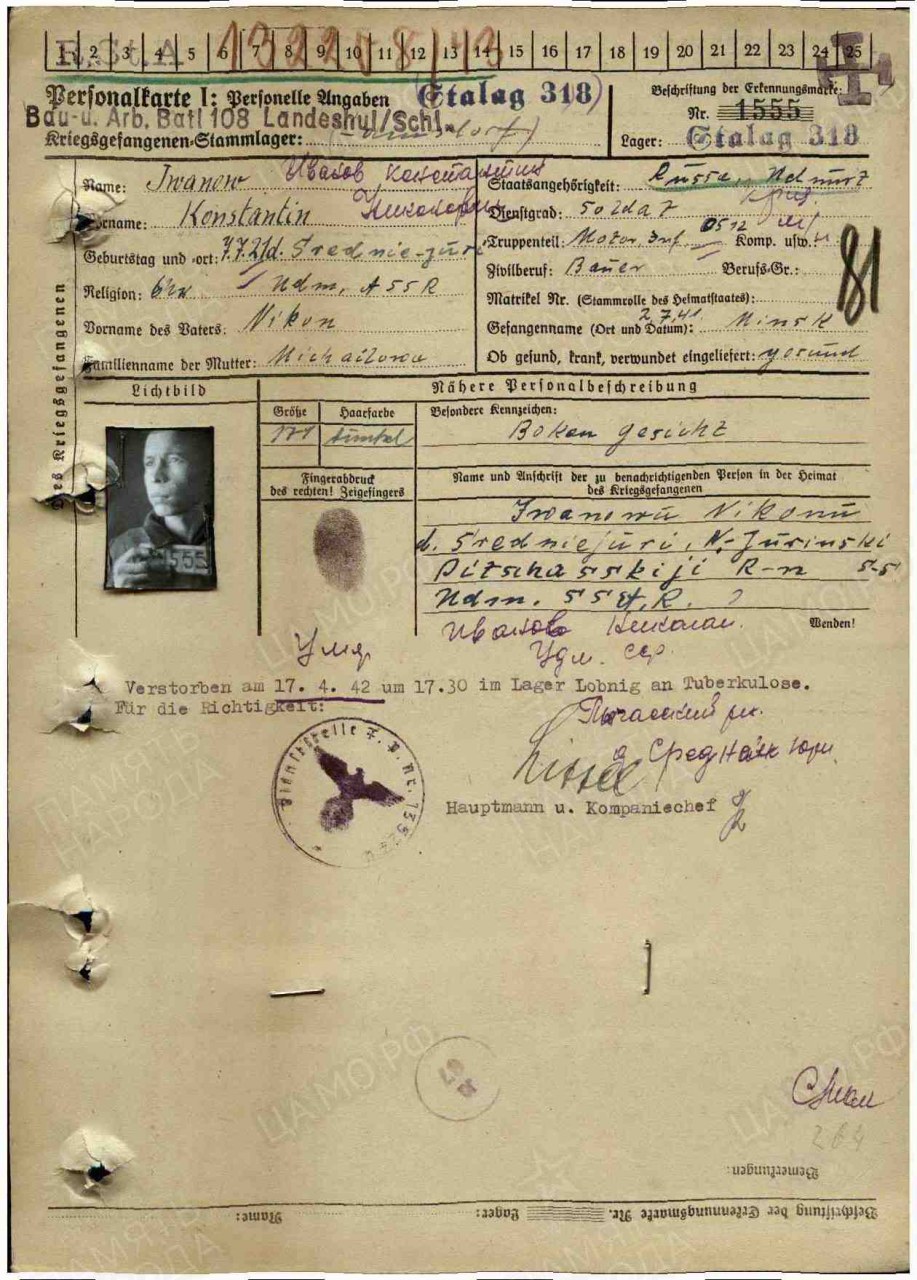 R.St.A 132258/43
1 2 3 4 5 6 7 8 9 10 11 12 13 14 15 16 17 18 19 20 21 22 23 24 25
Personalkarte I: Personelle Angaben (Stalag 318) Beschriftung der Erkennungsmarke:
Bau-u. Arb. Batl 108 Landeshut/Schl. Nr. 1555
Kriegsgefangenen-Stammlager: Lager: Stalag 318
Des Kriegsgefangenen
Name: Iwanow Иванов Константин
Vorname: Konstantin Никонович
Geburtstag und -ort: 7.7.21 d. Srednie-Juri
Religion: Udm. ASSR
Vorname des Vaters: Nikon
Familienname der Mutter: Michailowa
Staatsangehörigkeit: Russe, Udmurt
Dienstgrad: Soldat
Truppenteil: Motor. Inf. 0512 Komp. usw.:
Zivilberuf: Bauer Berufs-Gr.:
Matrikel Nr. (Stammrolle des Heimatstaates):
Gefangenname (Ort und Datum): 2.7.41 Minsk
Ob gesund, krank, verwundet eingeliefert: gesund
81
Lichtbild
Nähere Personalbeschreibung
Größe Haarfarbe Besondere Kennzeichen:
171 dunkel Boken gesicht
Fingerabdruck
des rechten! Zeigefingers
Name und Anschrift der zu benachrichtigenden Person in der Heimat
des Kriegsgefangenen
Iwanowu Nikonu
d. Sredniejuri, N-Jurinski
Pitschasskiji R-n
Udm. SSR.
1555
Wenden!
Иванов Никонан.
Удм. сср.
Verstorben am 17. 4. 42 um 17.30 im Lager Lobnig an Tuberkulose.
Für die Richtigkeit:
Пычасский рн.
д. Средние Юри
Dienststelle F.P.Nr.
Hauptmann u. Kompaniechef
264
Bemerkungen:
Beschriftung der Erkennungsmarke Nr. Lager: Name:
ЦАМО.РФ
ПАМЯТЬ
НАРОДА